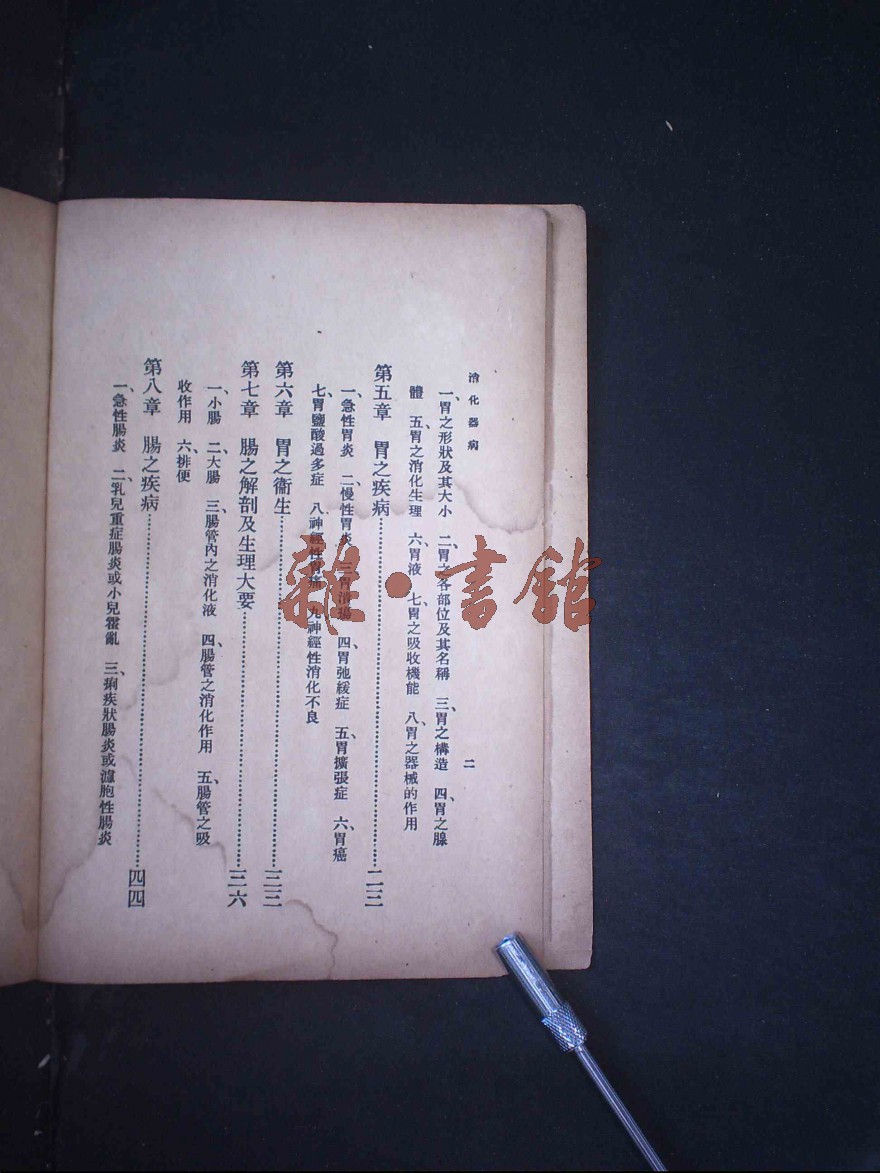 消化器病
二
一、胃之形狀及其大小 二、胃之各部位及其名稱 三、胃之構造 四、胃之腺
體 五、胃之消化生理 六、胃液 七、胃之吸收機能 八、胃之器械的作用
第五章 胃之疾病………二三
一、急性胃炎 二、慢性胃炎 三、胃潰瘍 四、胃弛緩症 五、胃擴張症 六、胃癌
七、胃鹽酸過多症 八、神經性胃痛 九、神經性消化不良
第六章 胃之衞生………三三
第七章 腸之解剖及生理大要………三六
一、小腸 二、大腸 三、腸管內之消化液 四、腸管之消化作用 五、腸管之吸
收作用 六、排便
第八章 腸之疾病………四四
一、急性腸炎 二、乳兒重症腸炎或小兒霍亂 三、痢疾狀腸炎或濾胞性腸炎
雜·書館